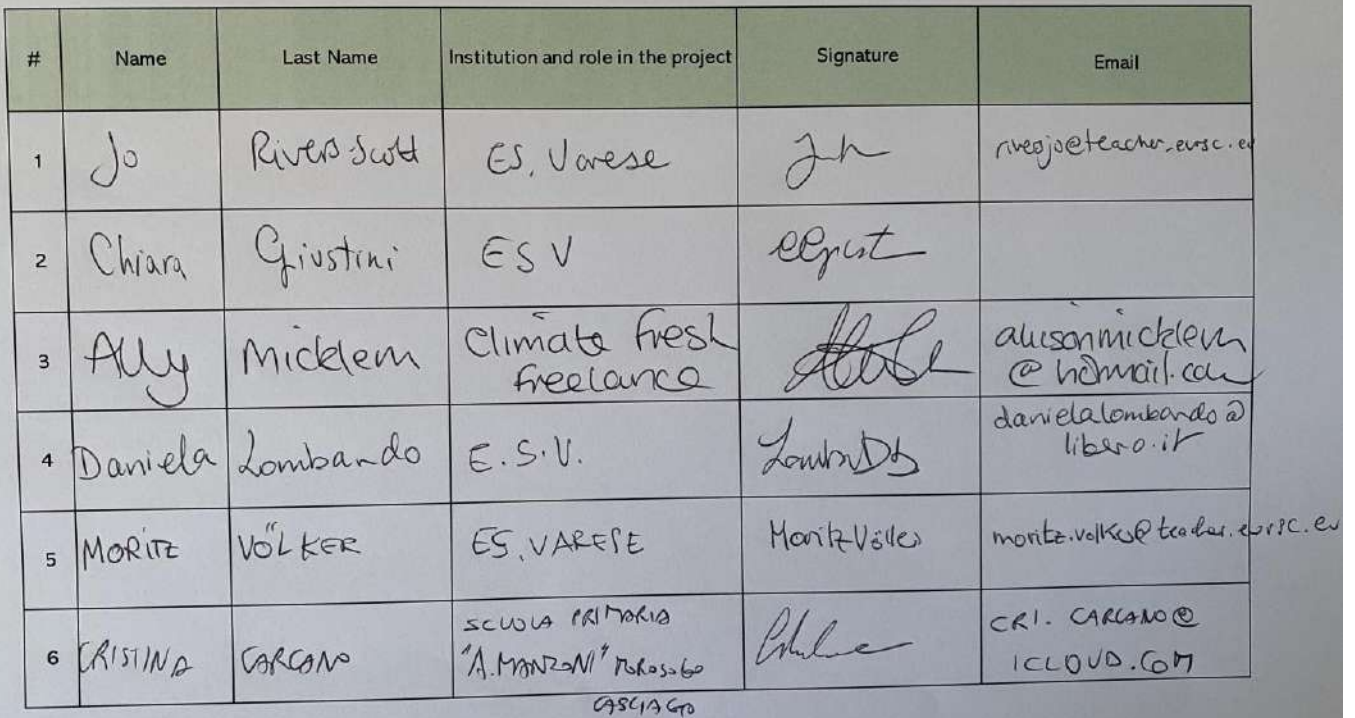 # Name Last Name Institution and role in the project Signature Email
1 Jo Rivers Scott ES, Varese
2 Chiara Giustini ESV
3 Ally Micklem Climate Fresh freelance alisonmicklem @hotmail.com
4 Daniela Lombardo E.S.V. danielalombardo@ libero.it
5 MORITZ VÖLKER ES, VARESE Moritz Völker moritz.volker@teacher.eursc.eu
6 CRISTINA CARCANO SCUOLA PRIMARIA "A. MANZONI" MOROSOLO CRI.CARCANO@ ICLOUD.COM
CASCIAGO